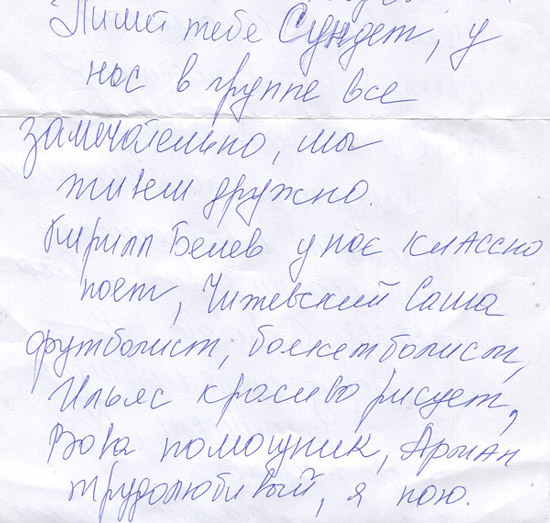 Пишет тебе Сундет, у
нас в группе все
замечательно, мы
живем дружно.
Кирилл Белев у нас классно
поет, Чижевский Саша
футболист, баскетболист,
Ильяс красиво рисует,
Вова помощник, Арман
трудолюбивый, я пою.